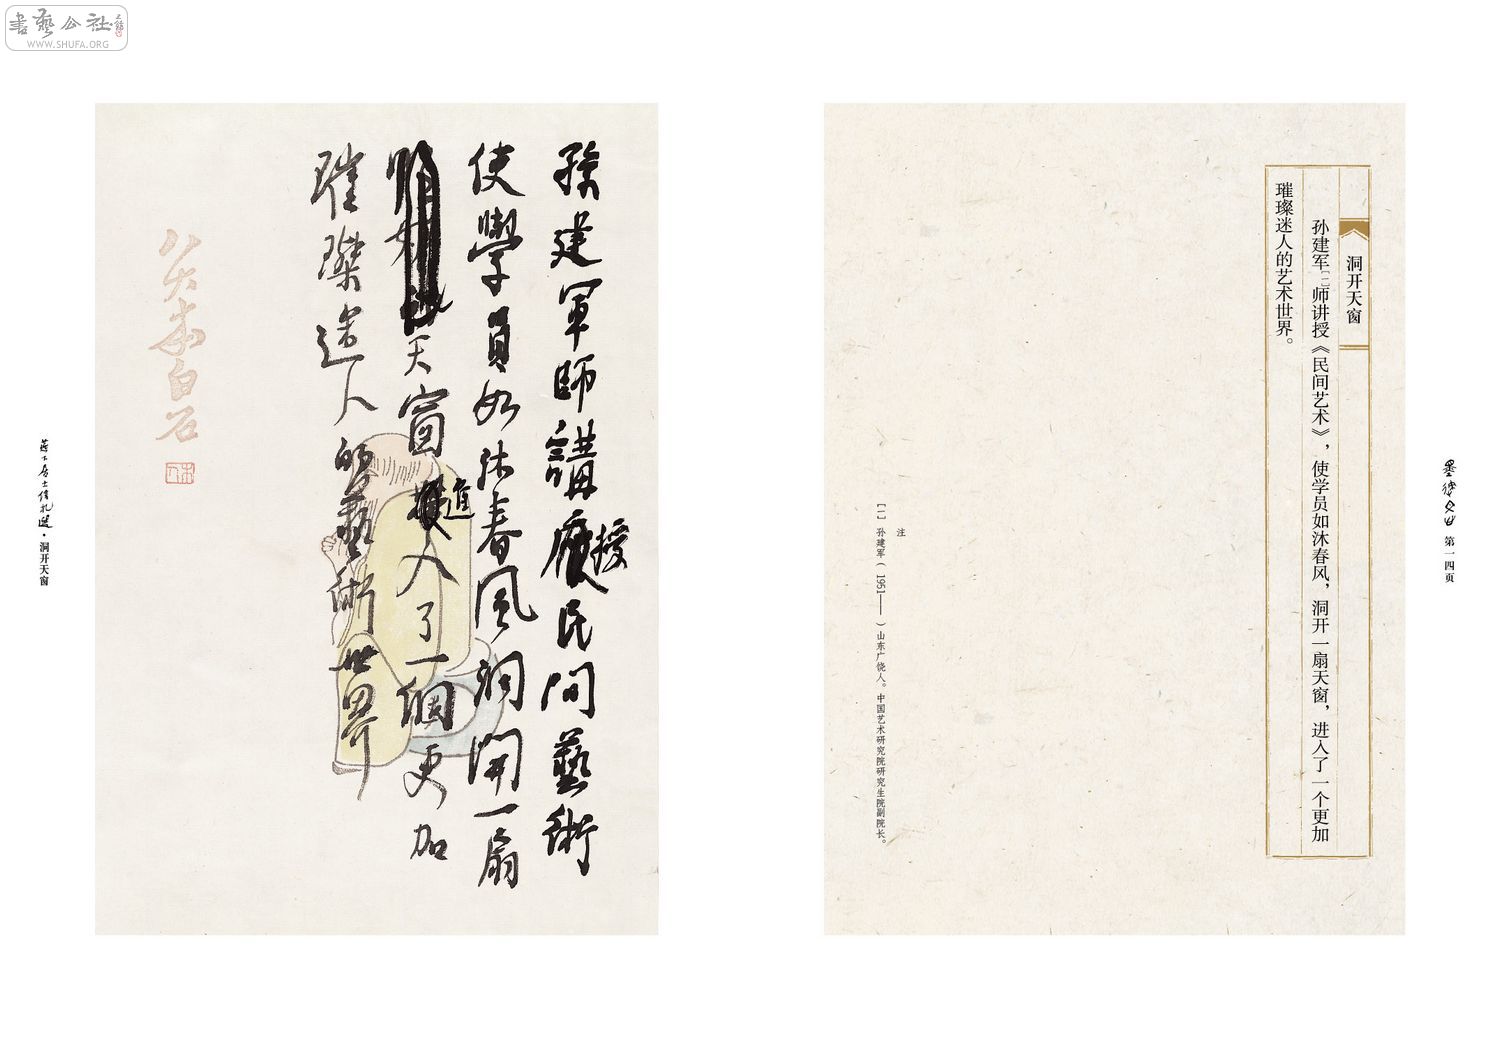 書藝公社
WWW.SHUFA.ORG
洞开天窗
孙建军[一]师讲授《民间艺术》，使学员如沐春风，洞开一扇天窗，进入了一个更加
璀璨迷人的艺术世界。
注
[一] 孙建军（1951——）山东广饶人。中国艺术研究院研究生院副院长。
第一四页
孫建軍師講授民间藝術
使學員如沐春风洞開一扇
天窗進入了一個更加
璀璨迷人的藝術世界
白石
居士信札選·洞开天窗